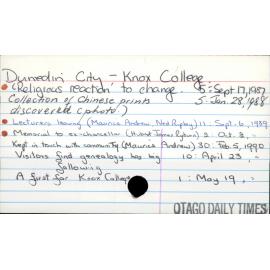 Dunedin City - Knox College
(Religious reaction to change. 5: Sept 17, 1987
Collection of Chinese prints 5: Jan. 28, 1988
discovered (photo).)
• Lecturers leaving (Maurice Andrew, Ned Ripley) 11: Sept. 6, 1989
• Memorial to ex-chancellor (Hubert James Ryburn) 2: Oct. 3, "
Kept in touch with community (Maurice Andrew) 30: Feb. 5, 1990
Visitors find genealogy has big 10: April 23, "
following
A first for Knox College 1: May 19, "
OTAGO DAILY TIMES